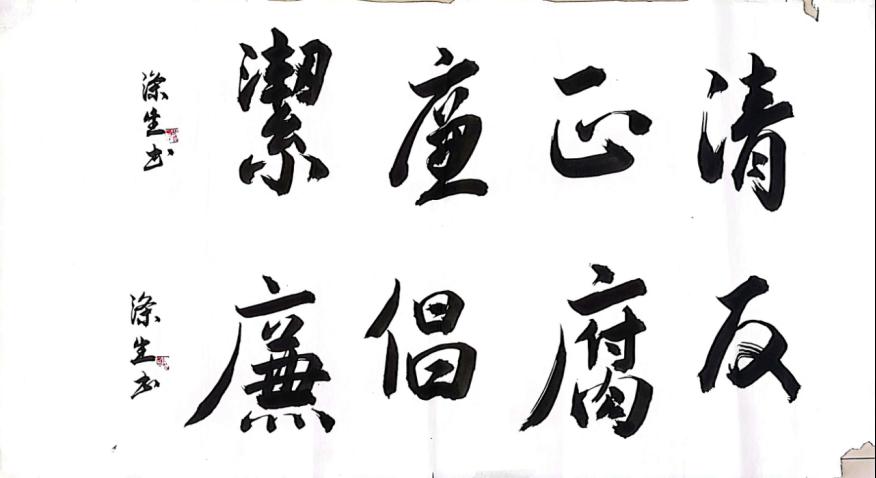 清正廉潔
滌生书
反腐倡廉
滌生书